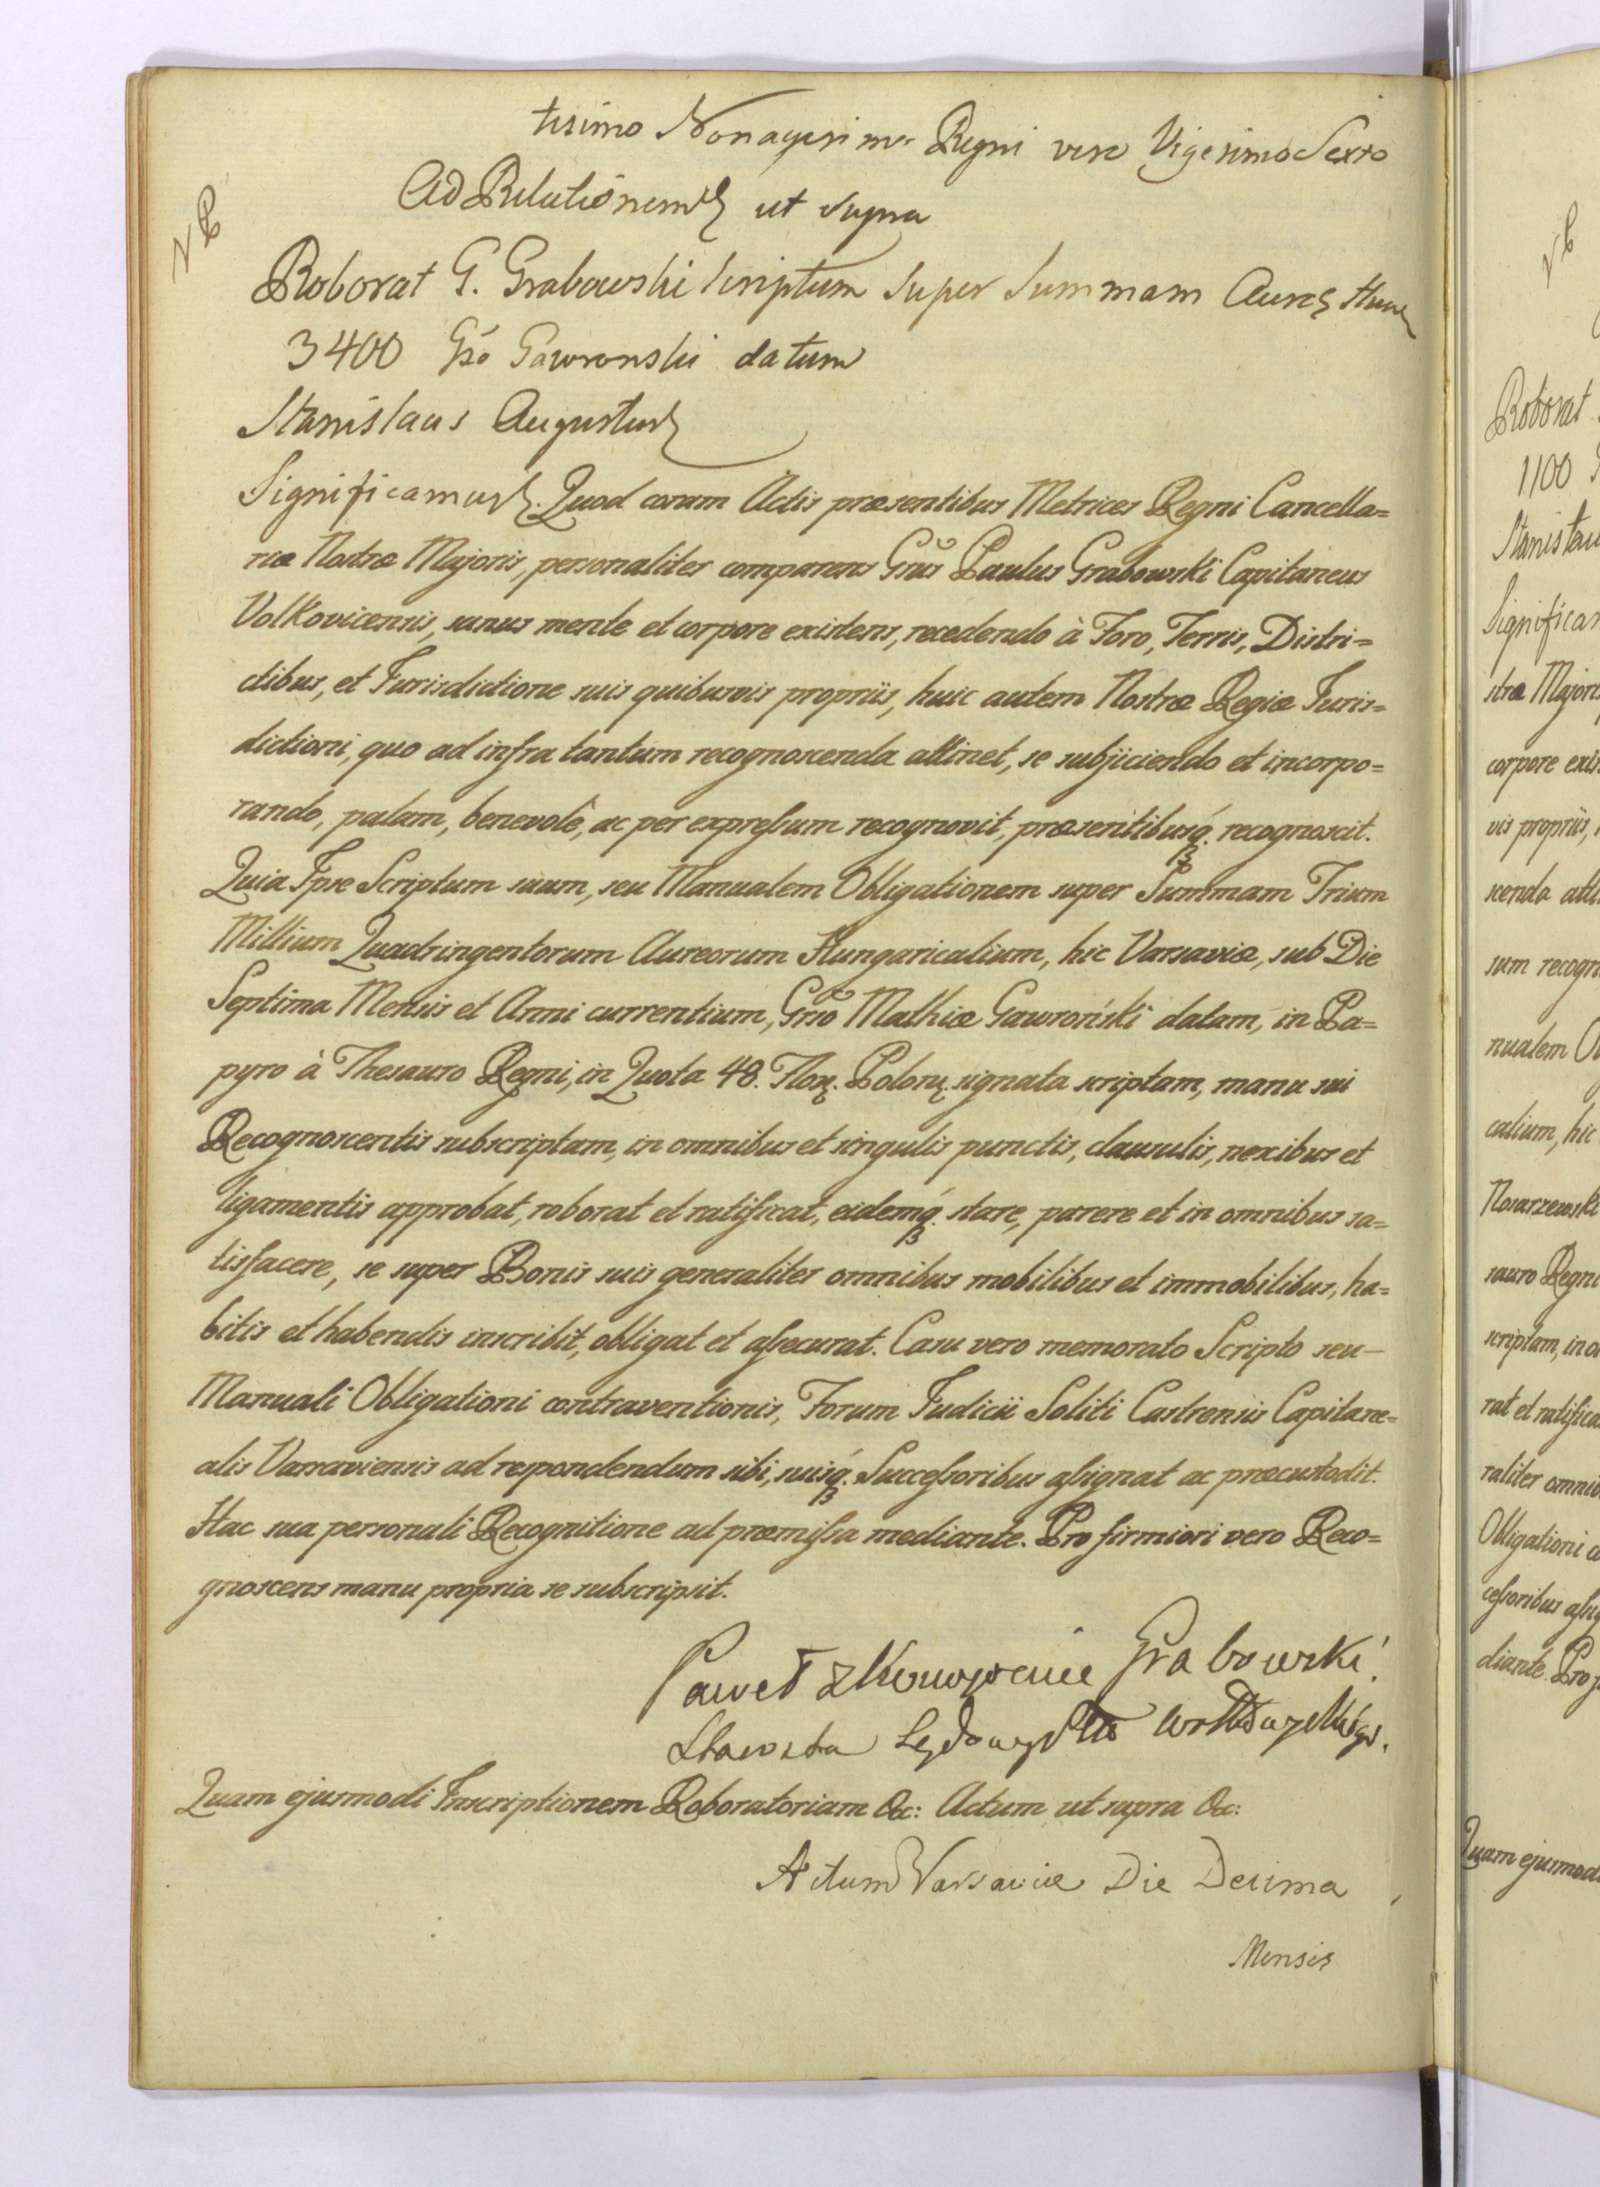 tesimo Nonagesimo Regni vero Vigesimo Sexto
Ad Relationem ut supra
Roborat G. Grabowski scriptum super summam Aureo Hun
3400 Gso Gawronski datum
Stanislaus Augustus
Significamus. Quod coram Actis præsentibus Metrices Regni Cancella=
riæ Nostræ Majoris, personaliter comparens Grūs Paulus Grabowski Capitaneus
Volkovicensis, sanus mente et corpore existens, recedendo à Foro, Terris, Distri=
ctibus, et Jurisdictione suis quibusvis propriis, huic autem Nostræ Regiæ Juris=
dictioni, quo ad infra tantum recognoscenda attinet, se subjiciendo et incorpo=
rando, palam, benevolè, ac per expressum recognovit, præsentibusq. recognoscit.
Quia Ipse Scriptum suum, seu Manualem Obligationem super Summam Trium
Millium Quadringentorum Aureorum Hungaricalium, hic Varsaviæ, sub Die
Septima Mensis et Anni currentium, Grso Mathiæ Gawroński datam, in Pa=
pyro à Thesauro Regni, in Quota 48. Flor. Polon. signata scriptam, manu sui
Recognoscentis subscriptam, in omnibus et singulis punctis, clausulis, nexibus et
ligamentis approbat, roborat et ratificat, eidemq. stare, parere et in omnibus sa=
tisfacere, se super Bonis suis generaliter omnibus mobilibus et immobilibus, ha=
bitis et habendis inscribit, obligat et assecurat. Casu vero memorato Scripto seu
Manuali Obligationi contraventionis, Forum Judicii Soliti Castrensis Capitane=
alis Varsaviensis ad respondendum sibi, suisq. Successoribus assignat ac præcustodit.
Hac sua personali Recognitione ad præmissa mediante. Pro firmiori vero Reco=
gnoscens manu propria se subscripsit.
Paweł z Konopnice Grabowski
Starosta
Quam ejusmodi Inscriptionem Roboratoriam &c: Actum ut supra &c:
Actum Varsaviæ Die Decima
Mensis
Roborat
1100
Stanislau
Significam
stræ Majoris
corpore exis
vis propriis,
scenda atti
sum recogn
nualem O
calium, hic
Nosarzewski
sauro Regni
scriptam, in o
rat et ratifica
raliter omnib
Obligationi co
cessoribus assig
diante. Pro f
Quam ejusmod